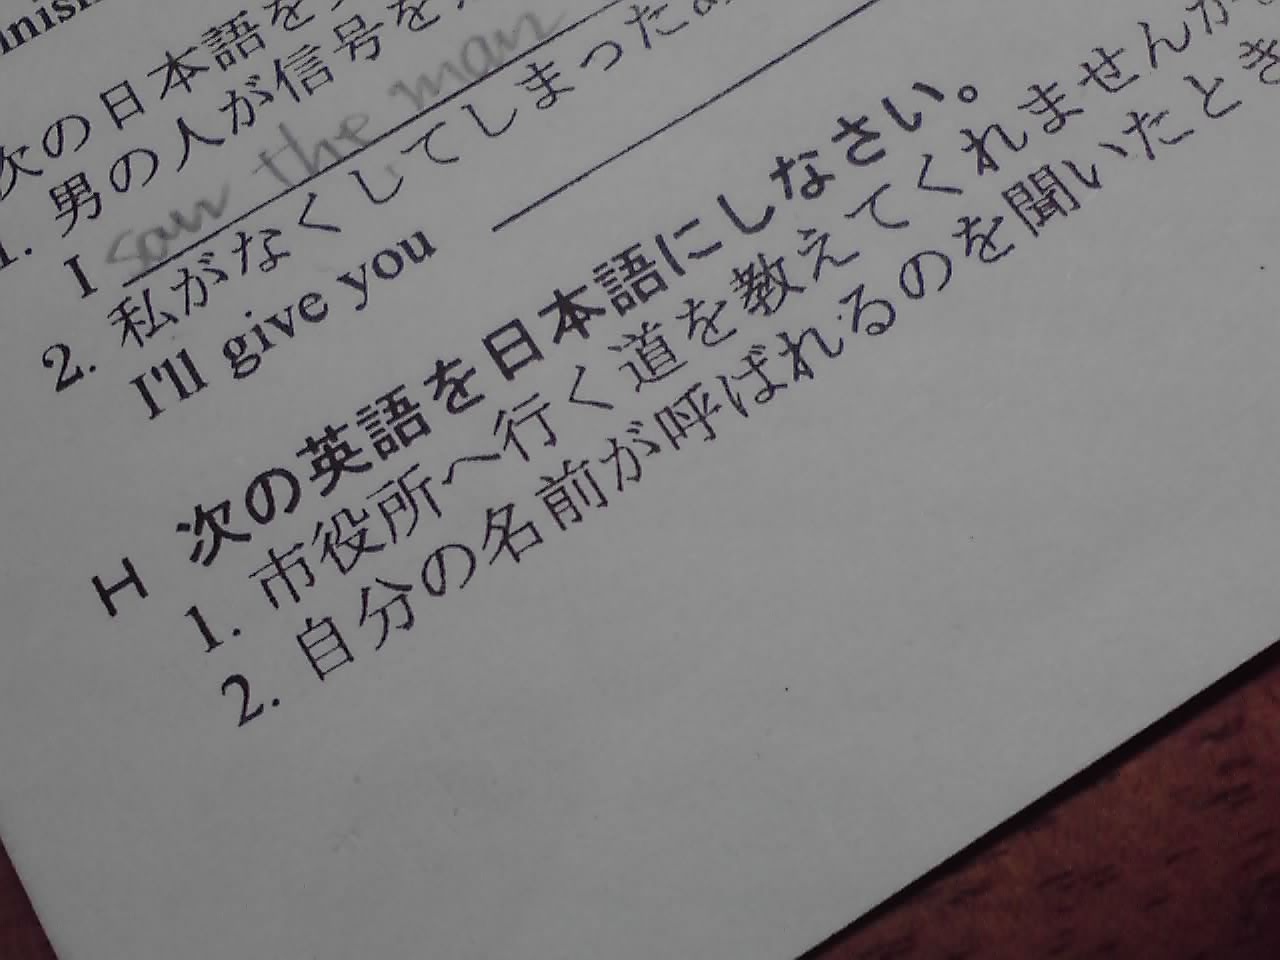 次の日本語を
1. 男の人が信号を
I saw the man
2. 私がなくしてしまった
I'll give you
H 次の英語を日本語にしなさい。
1. 市役所へ行く道を教えてくれません
2. 自分の名前が呼ばれるのを聞いたとき